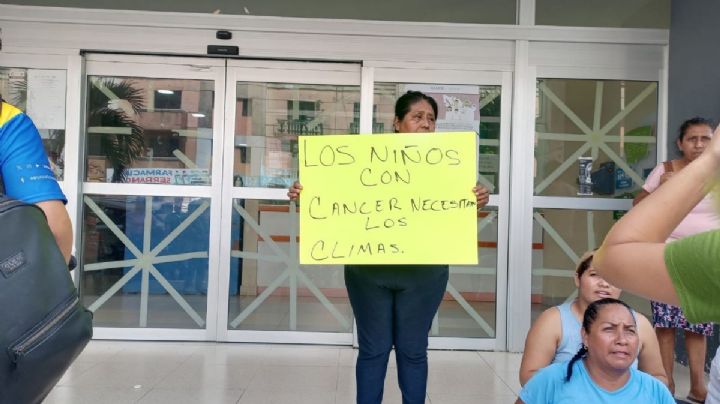 LOS NIÑOS
CON
CANCER NECESITAN
LOS
CLIMAS.
FARMACIA
SERRANO